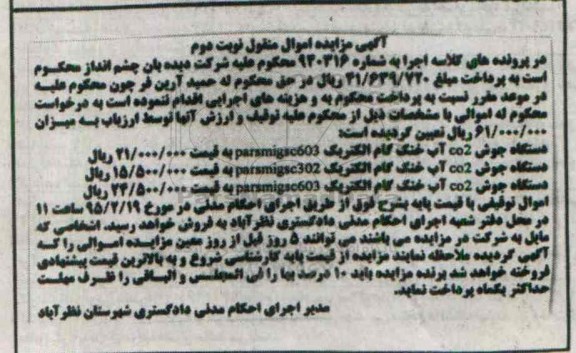 آگهی مزایده اموال منقول نوبت دوم
در پرونده های کلاسه اجرا به شماره ۹۳۰۳۱۶ محکوم علیه شرکت دیده بان چشم انداز محکـــوم
است به پرداخت مبلغ ۳۱/۶۳۹/۷۲۰ ریال در حق محکوم له حمید آرین فر چون محکوم علیـه
در موعد مقرر نسبت به پرداخت محکوم به و هزینه های اجرایی اقدام ننموده است به درخواست
محکوم له اموالی با مشخصات ذیل از محکوم علیه توقیف و ارزش آنها توسط ارزیاب بـه میـزان
۶۱/۰۰۰/۰۰۰ ریال تعیین گردیده است:
دستگاه جوش co2 آب خنگ گام الکتریک parsmigsc603 به قیمت ۲۱/۰۰۰/۰۰۰ ریال
دستگاه جوش co2 آب خنگ گام الکتریک parsmigsc302 به قیمت ۱۵/۵۰۰/۰۰۰ ریال
دستگاه جوش co2 آب خنگ گام الکتریک parsmigsc603 به قیمت ۲۴/۵۰۰/۰۰۰ ریال
اموال توقیفی با قیمت پایه بشرح فوق از طریق اجرای احکام مدنی در مورخ ۹۵/۲/۱۹ ساعت ۱۱
در محل دفتر شعبه اجرای احکام مدنی دادگستری نظرآباد به فروش خواهد رسید. اشخاصی که
مایل به شرکت در مزایده می باشند می توانند ۵ روز قبل از روز معین مزایـده امـــوالی را کـه
آگهی گردیده ملاحظه نمایند مزایده از قیمت پایه کارشناسی شروع و به بالاترین قیمت پیشنهادی
فروخته خواهد شد برنده مزایده باید ۱۰ درصد بها را فی المجلـس و البـاقی را ظـرف مهلـت
حداکثر یکماه پرداخت نماید.
مدیر اجرای احکام مدنی دادگستری شهرستان نظرآباد